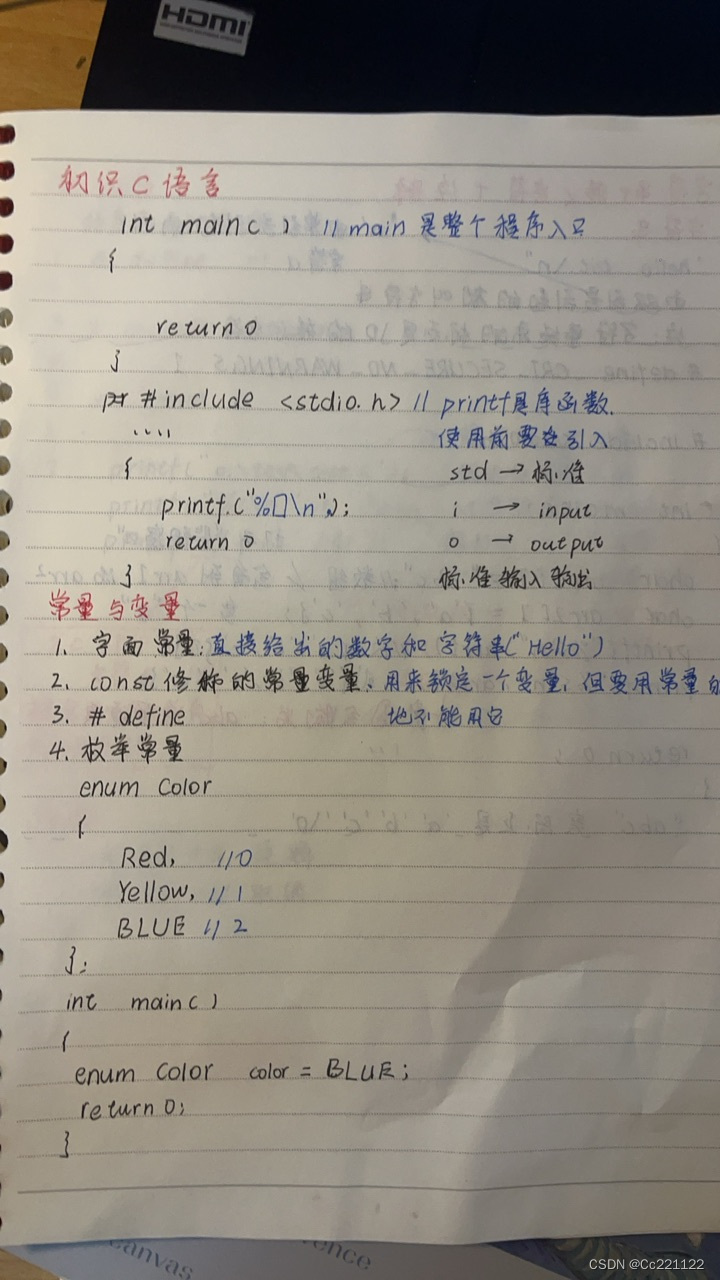 HDMI
初识C语言
int main ( ) // main 是整个程序入口
{
return 0
}
#include <stdio.h> // printf是库函数.
使用前要去引入
{
std → 标准
printf("%□\n",);
i → input
return 0
o → output
}
标准输入输出
常量与变量
1. 字面常量:直接给出的数字和字符串("Hello")
2. const修饰的常量变量、用来锁定一个变量, 但要用常量的
地不能用它
3. # define
4. 枚举常量
enum Color
{
Red, //0
Yellow, //1
BLUE //2
};
int main( )
{
enum Color color = BLUE;
return 0;
}
canvas
CSDN @Cc221122